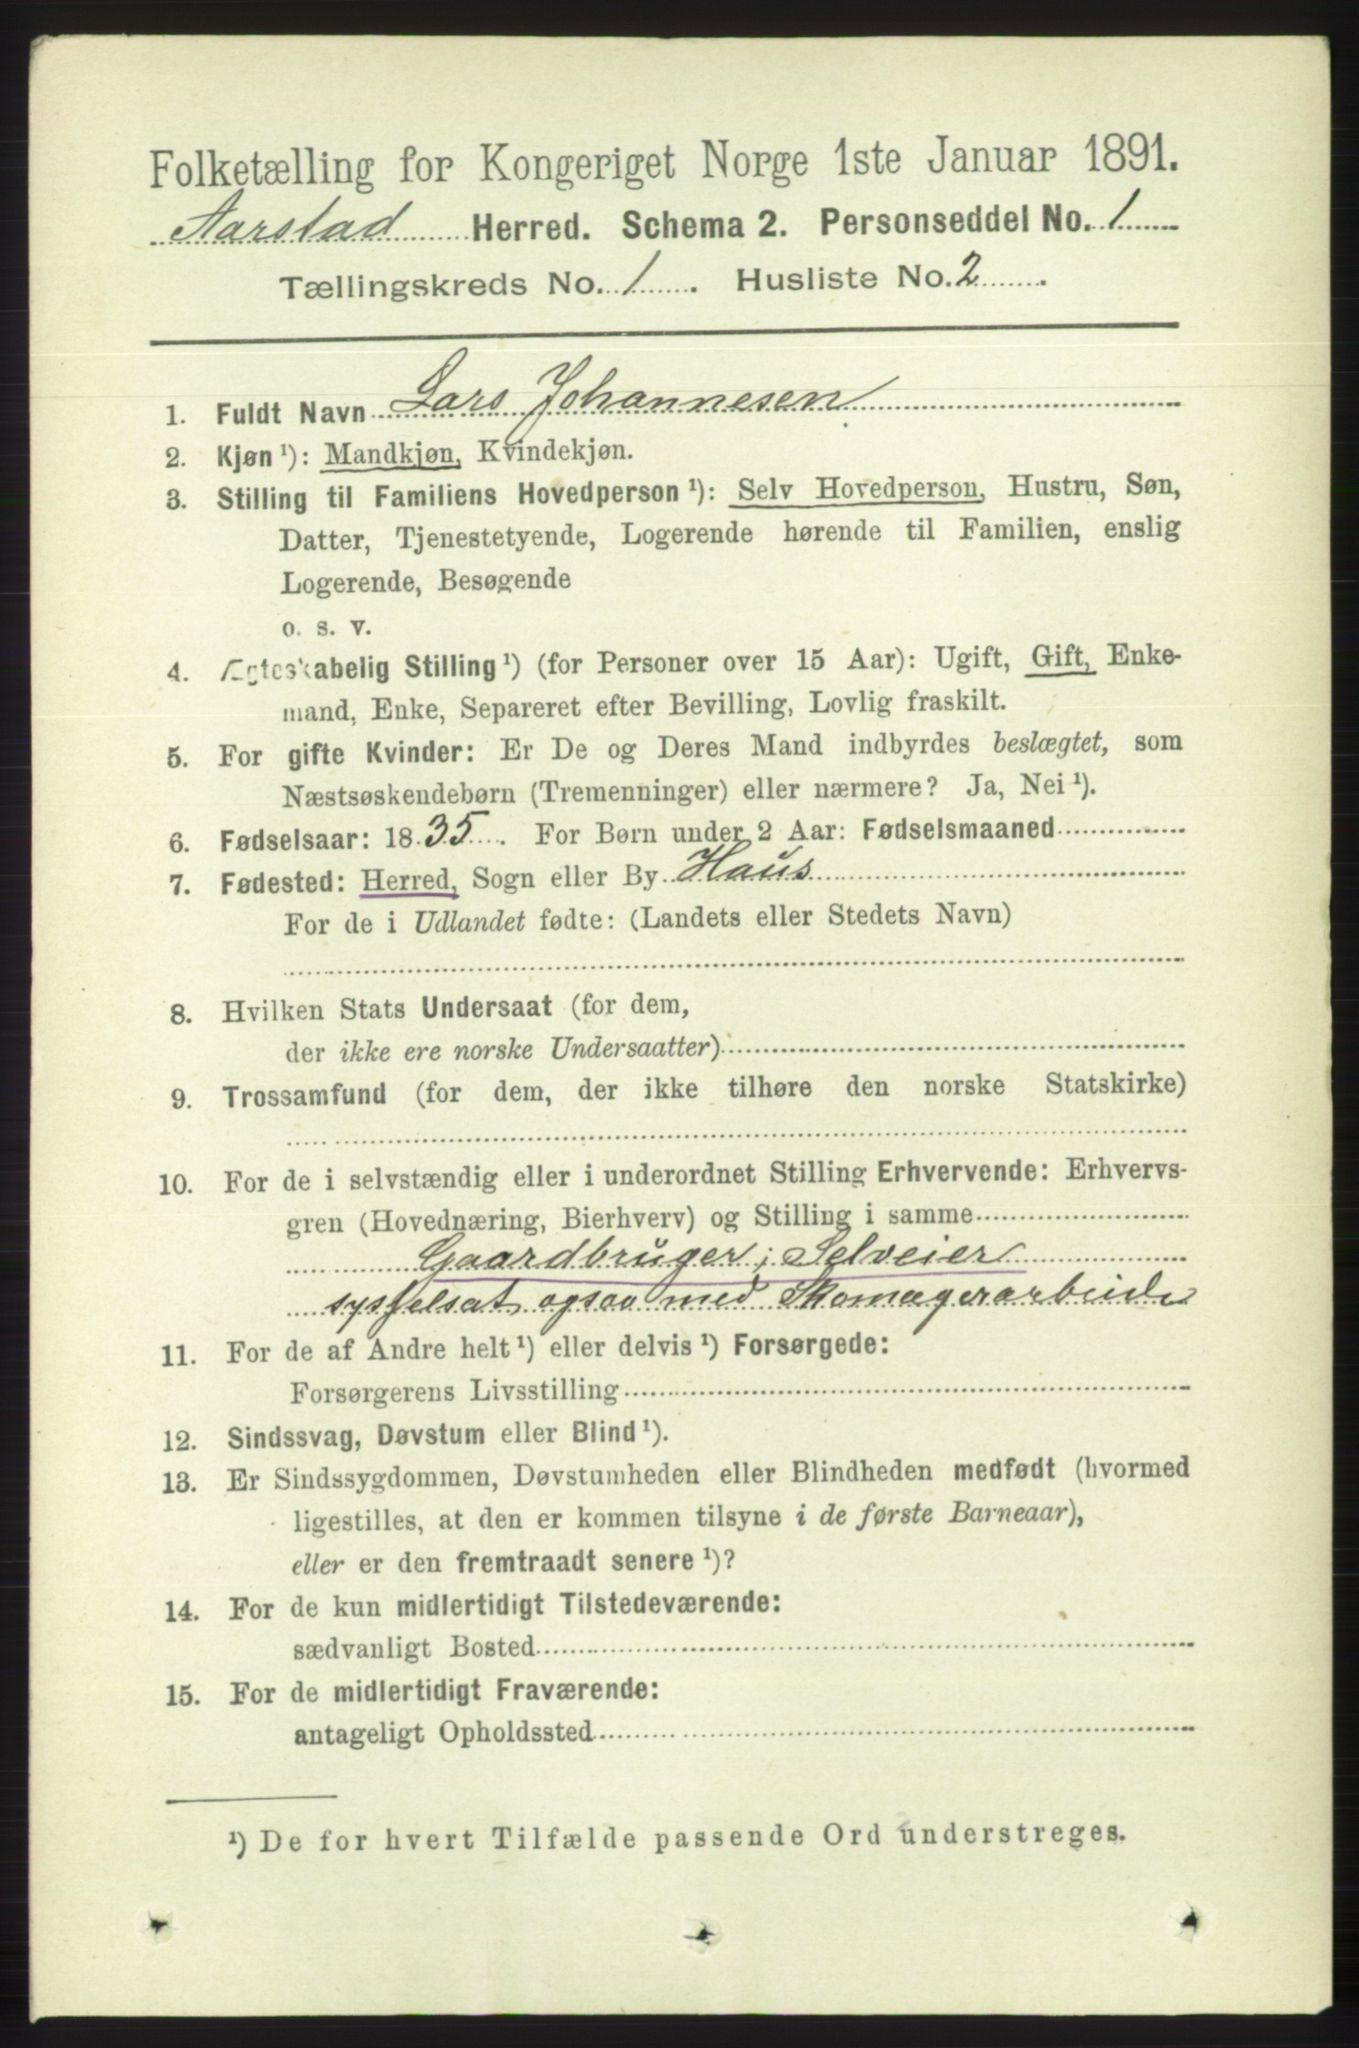 Folketælling for Kongeriget Norge 1ste Januar 1891.
Aarstad Herred. Schema 2. Personseddel No. 1
Tællingskreds No. 1. Husliste No. 2.
1. Fuldt Navn Lars Johannesen
2. Kjøn ¹): Mandkjøn, Kvindekjøn.
3. Stilling til Familiens Hovedperson ¹): Selv Hovedperson, Hustru, Søn,
Datter, Tjenestetyende, Logerende hørende til Familien, enslig
Logerende, Besøgende
o. s. v.
4. Ægteskabelig Stilling ¹) (for Personer over 15 Aar): Ugift, Gift, Enke-
mand, Enke, Separeret efter Bevilling, Lovlig fraskilt.
5. For gifte Kvinder: Er De og Deres Mand indbyrdes beslægtet, som
Næstsøskendebørn (Tremenninger) eller nærmere? Ja, Nei ¹).
6. Fødselsaar: 1835. For Børn under 2 Aar: Fødselsmaaned
7. Fødested: Herred, Sogn eller By Haus
For de i Udlandet fødte: (Landets eller Stedets Navn)
8. Hvilken Stats Undersaat (for dem,
der ikke ere norske Undersaatter)
9. Trossamfund (for dem, der ikke tilhøre den norske Statskirke)
10. For de i selvstændig eller i underordnet Stilling Erhvervende: Erhvervs-
gren (Hovednæring, Bierhverv) og Stilling i samme
Gaardbruger, Selveier
sysselsat ogsaa med Skomagerarbeide
11. For de af Andre helt ¹) eller delvis ¹) Forsørgede:
Forsørgerens Livsstilling
12. Sindssvag, Døvstum eller Blind ¹).
13. Er Sindssygdommen, Døvstumheden eller Blindheden medfødt (hvormed
ligestilles, at den er kommen tilsyne i de første Barneaar),
eller er den fremtraadt senere ¹)?
14. For de kun midlertidigt Tilstedeværende:
sædvanligt Bosted
15. For de midlertidigt Fraværende:
antageligt Opholdssted
¹) De for hvert Tilfælde passende Ord understreges.